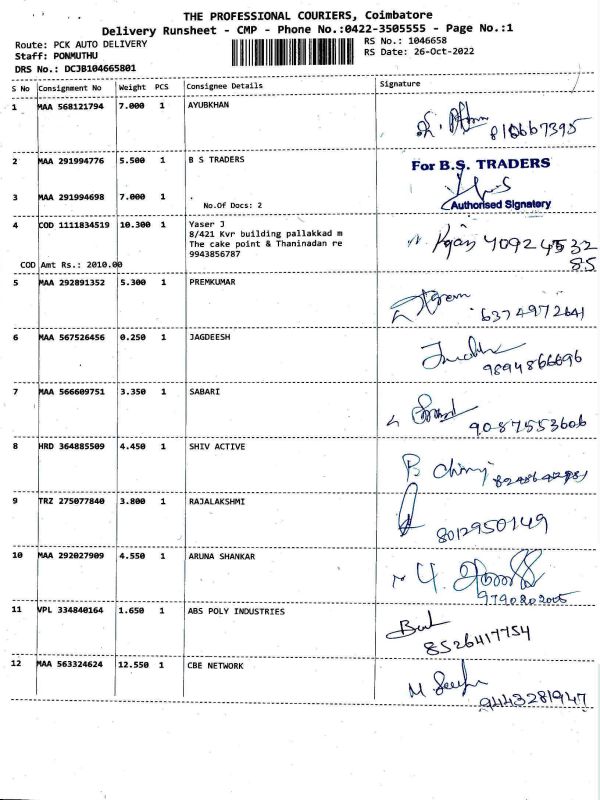 THE PROFESSIONAL COURIERS, Coimbatore
Delivery Runsheet - CMP - Phone No.:0422-3505555 - Page No.:1
Route: PCK AUTO DELIVERY
Staff: PONMUTHU
DRS No.: DCJB104665801
RS No.: 1046658
RS Date: 26-Oct-2022
S No Consignment No Weight PCS Consignee Details Signature
1 MAA 568121794 7.000 1 AYUBKHAN
816667395
2 MAA 291994776 5.500 1 B S TRADERS
For B.S. TRADERS
3 MAA 291994698 7.000 1
No.Of Docs: 2
Authorised Signatory
4 COD 1111834519 10.300 1 Yaser J
8/421 Kvr building pallakkad m
The cake point & Thaninadan re
9943856787
40924532
85
COD Amt Rs.: 2010.00
5 MAA 292891352 5.300 1 PREMKUMAR
6374972641
6 MAA 567526456 0.250 1 JAGDEESH
9894866696
7 MAA 566609751 3.350 1 SABARI
9087553606
8 HRD 364885509 4.450 1 SHIV ACTIVE
9 TRZ 275077840 3.800 1 RAJALAKSHMI
8012950149
10 MAA 292027909 4.550 1 ARUNA SHANKAR
9790202005
11 VPL 334840164 1.650 1 ABS POLY INDUSTRIES
8526417754
12 MAA 563324624 12.550 1 CBE NETWORK
9443281947